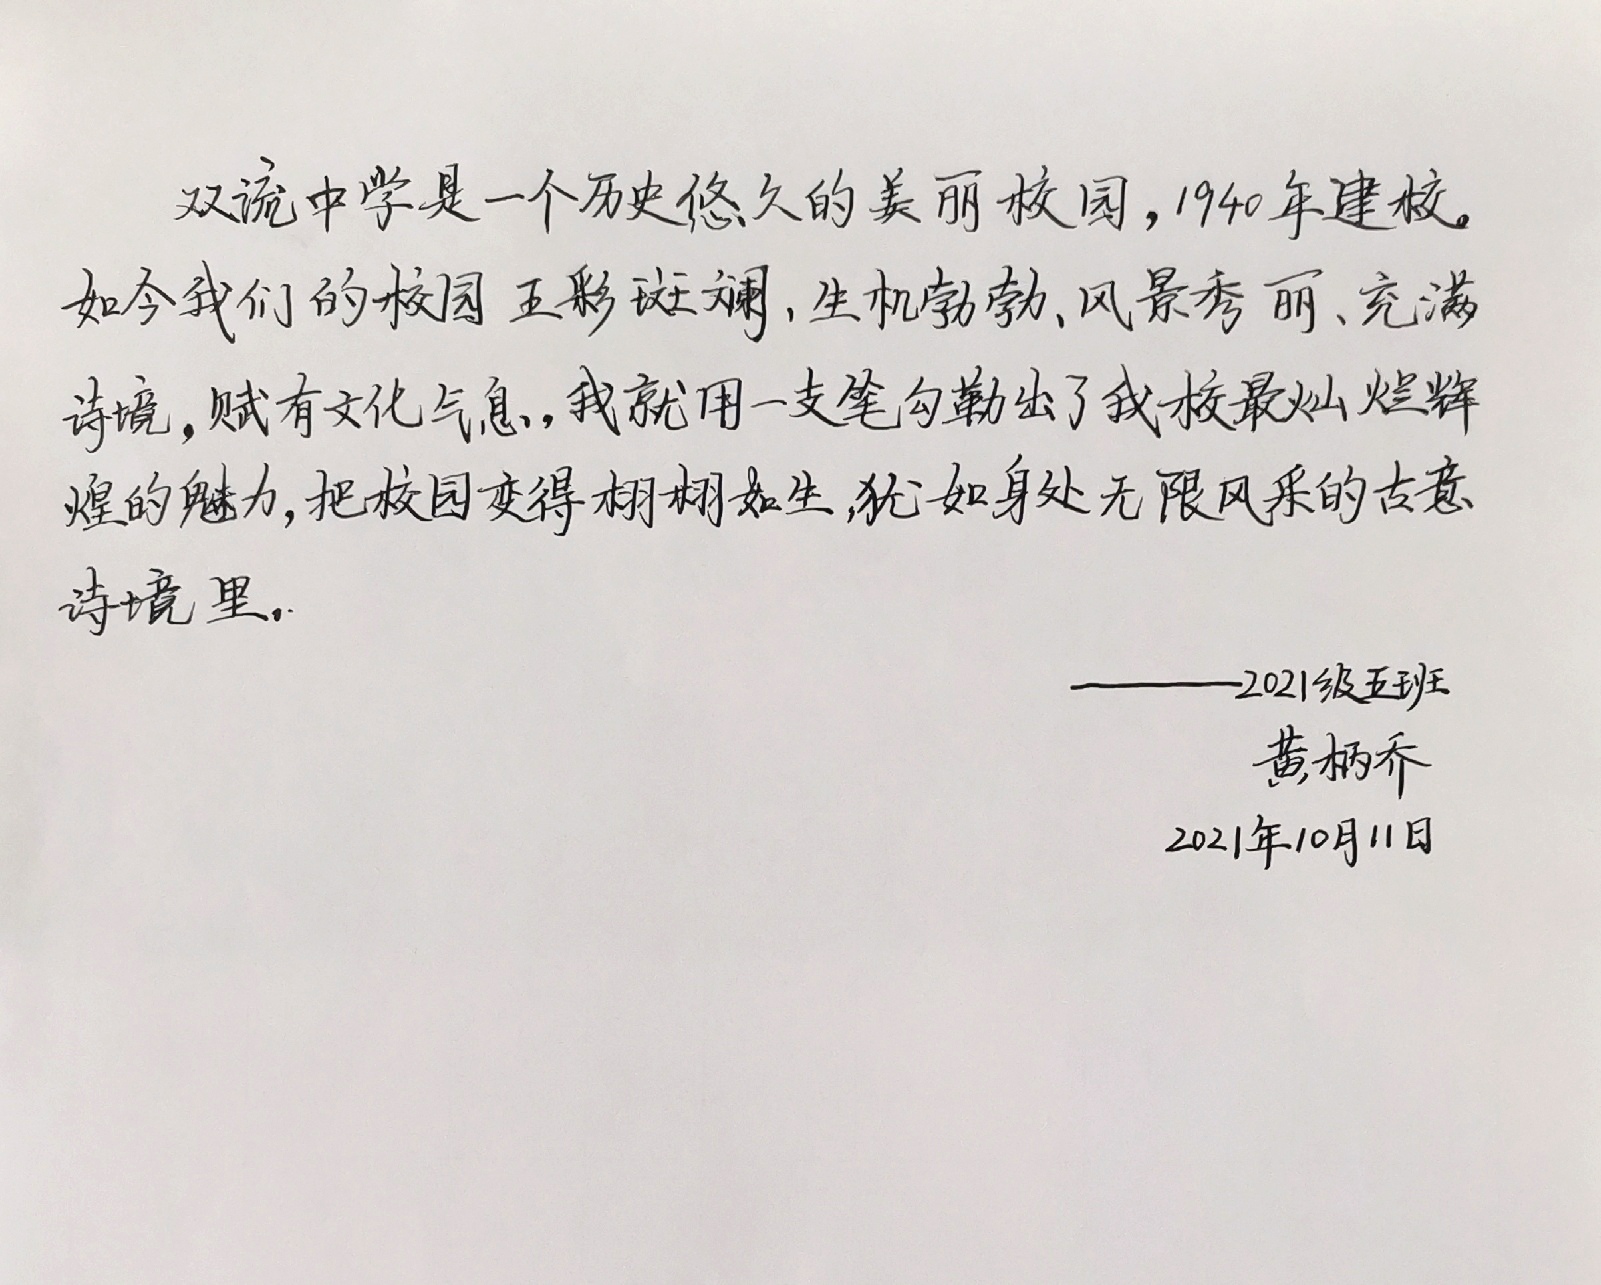 双流中学是一个历史悠久的美丽校园，1940年建校。
如今我们的校园五彩斑斓、生机勃勃、风景秀丽、充满
诗境，赋有文化气息，我就用一支笔勾勒出了我校最灿烂辉
煌的魅力，把校园变得栩栩如生，犹如身处无限风采的古意
诗境里。
———2021级五班
黄柄乔
2021年10月11日